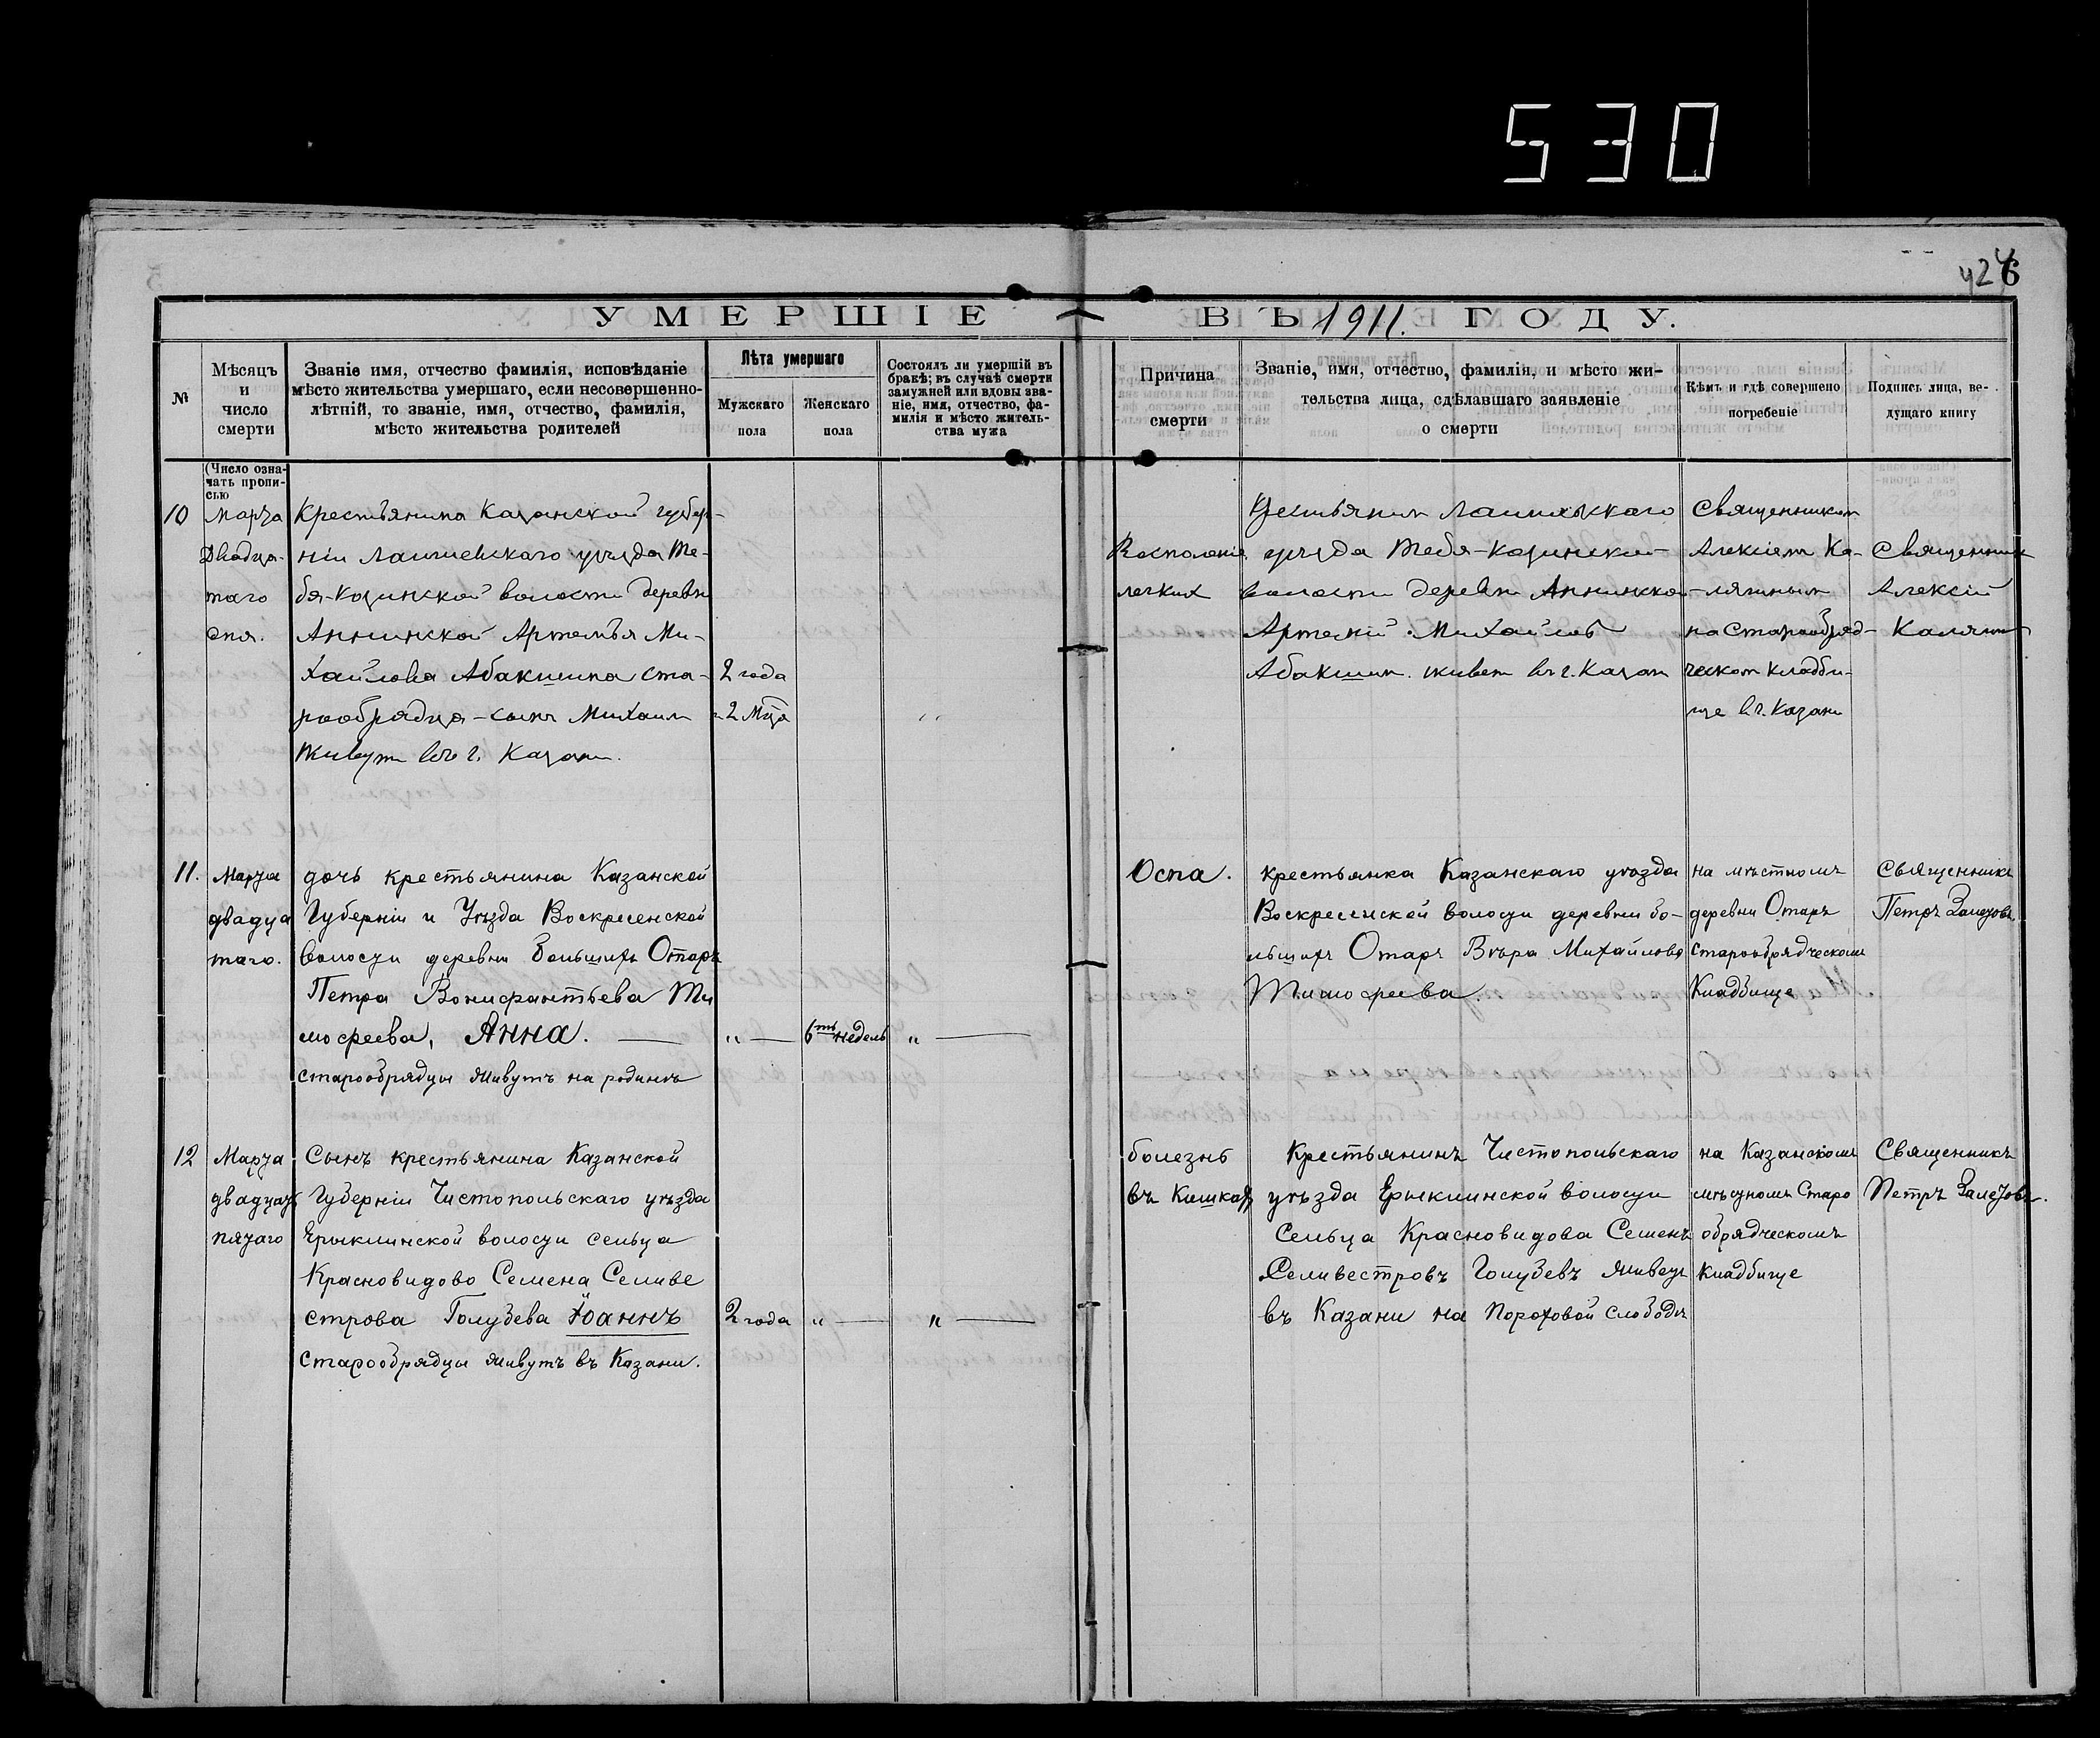 530
426
УМЕРШІЕ ВЪ 1911. ГОДУ.
№
Мѣсяцъ
и
число
смерти
Званіе имя, отчество фамилія, исповѣданіе
мѣсто жительства умершаго, если несовершенно-
лѣтній, то званіе, имя, отчество, фамилія,
мѣсто жительства родителей
Лѣта умершаго
Мужскаго
пола
Женскаго
пола
Состоялъ ли умершій въ
бракѣ; въ случаѣ смерти
замужней или вдовы зва-
ніе, имя, отчество, фа-
милія и мѣсто житель-
ства мужа
Причина
смерти
Званіе, имя, отчество, фамилія, и мѣсто жи-
тельства лица, сдѣлавшаго заявленіе
о смерти
Кѣмъ и гдѣ совершено
погребеніе
Подпись лица, ве-
дущаго книгу
(Число озна-
чать пропи-
сью
10
Марта
Двадца-
таго
дня.
Крестьянина Казанской губер-
ніи Лаишевскаго уѣзда Те-
бя-Козинской волости деревни
Аннинской Артемья Ми-
хайлова Абакшина ста-
рообрядца - сынъ Михаил
Живут въ г. Казани.
2 года
2 Мца
"
Воспаленіе
легких
Крестьянин
уѣзда Тебя-Козинской
волости деревни Аннинской
Артемий Михайлов
Абакшин. живет въ г. Казани
Священником
Алексіем Ка-
лягиным
на Старообряд-
ческом кладби-
ще в г. Казани
Священник
Алексій
Калягин
11.
Марта
двадца
таго.
дочь крестьянина Казанской
Губерніи и Уѣзда Воскресенской
волости деревни Большихъ Отаръ
Петра Вонифантьева Ти
мофеева, Анна. —
старообрядцы живутъ на родинѣ
" —
6ть недель
" —
Оспа.
крестьянка Казанскаго уѣзда
Воскресенской волости деревни Бо-
льшихъ Отаръ Вѣра Михайлова
Тимофеева.
на мѣстномъ
деревни Отаръ
старообрядческомъ
Кладбище
Священникъ
Петръ Залетовъ.
12
Марта
двадцать
пятаго
Сынъ крестьянина Казанской
Губерніи Чистопольскаго уѣзда
Ерыклинской волости сельца
Красновидово Семена Селиве
строва Голубева Іоаннъ
Старообрядцы живутъ въ Казани.
2 года
" —
" —
болезнь
въ Кишках
Крестьянинъ Чистопольскаго
уѣзда Ерыклинской волости
Сельца Красновидова Семенъ
Селивестровъ Голубевъ живетъ
въ Казани на Пороховой слободѣ
на Казанскомъ
мѣстномъ Старо
обрядческомъ
Кладбище
Священникъ
Петръ Залетовъ.